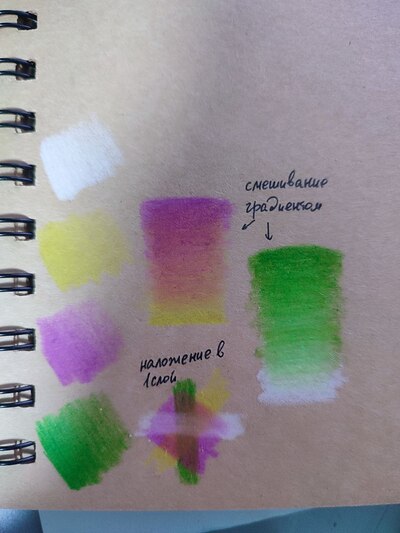 смешивание
градиентом
наложение в
1 слой